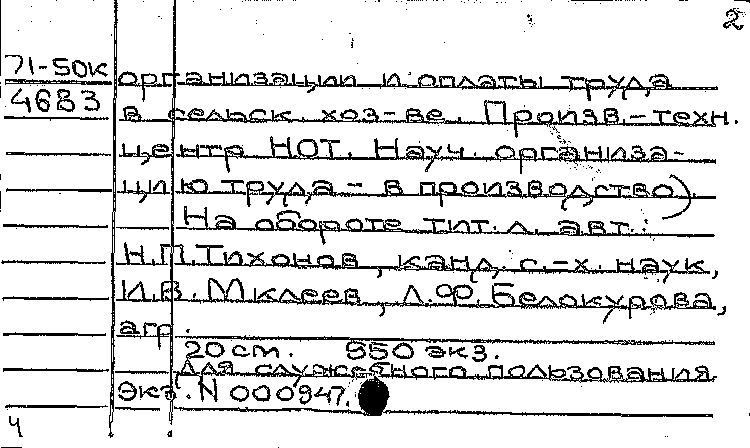 2
71-50к организации и оплаты труда
4683 в сельск. хоз-ве. Произв.-техн.
центр НОТ. Науч. организа-
цию труда - в производство).
На обороте тит. л. авт.:
Н.П.Тихонов, канд. с.-х. наук,
И.В. Миклеев, Л.Ф. Белокурова,
агр.
20 см. 950 экз.
Для служебного пользования
Экз. N 000947.
4